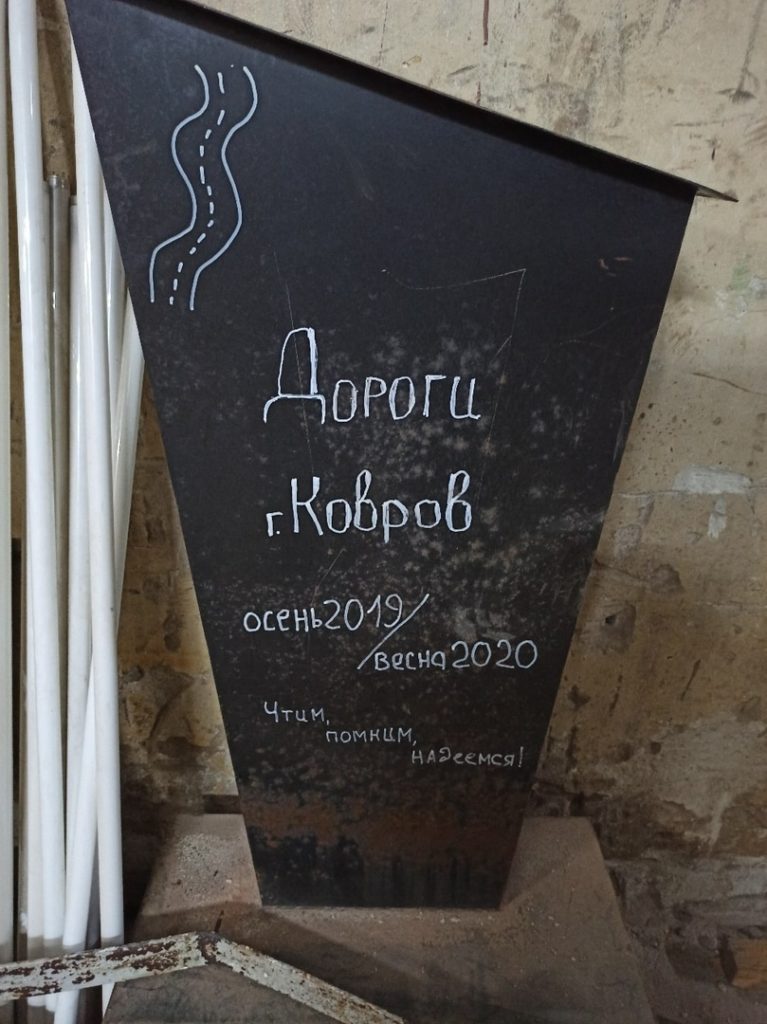 Дороги
г. Ковров
осень 2019/
весна 2020
Чтим,
помним,
надеемся!